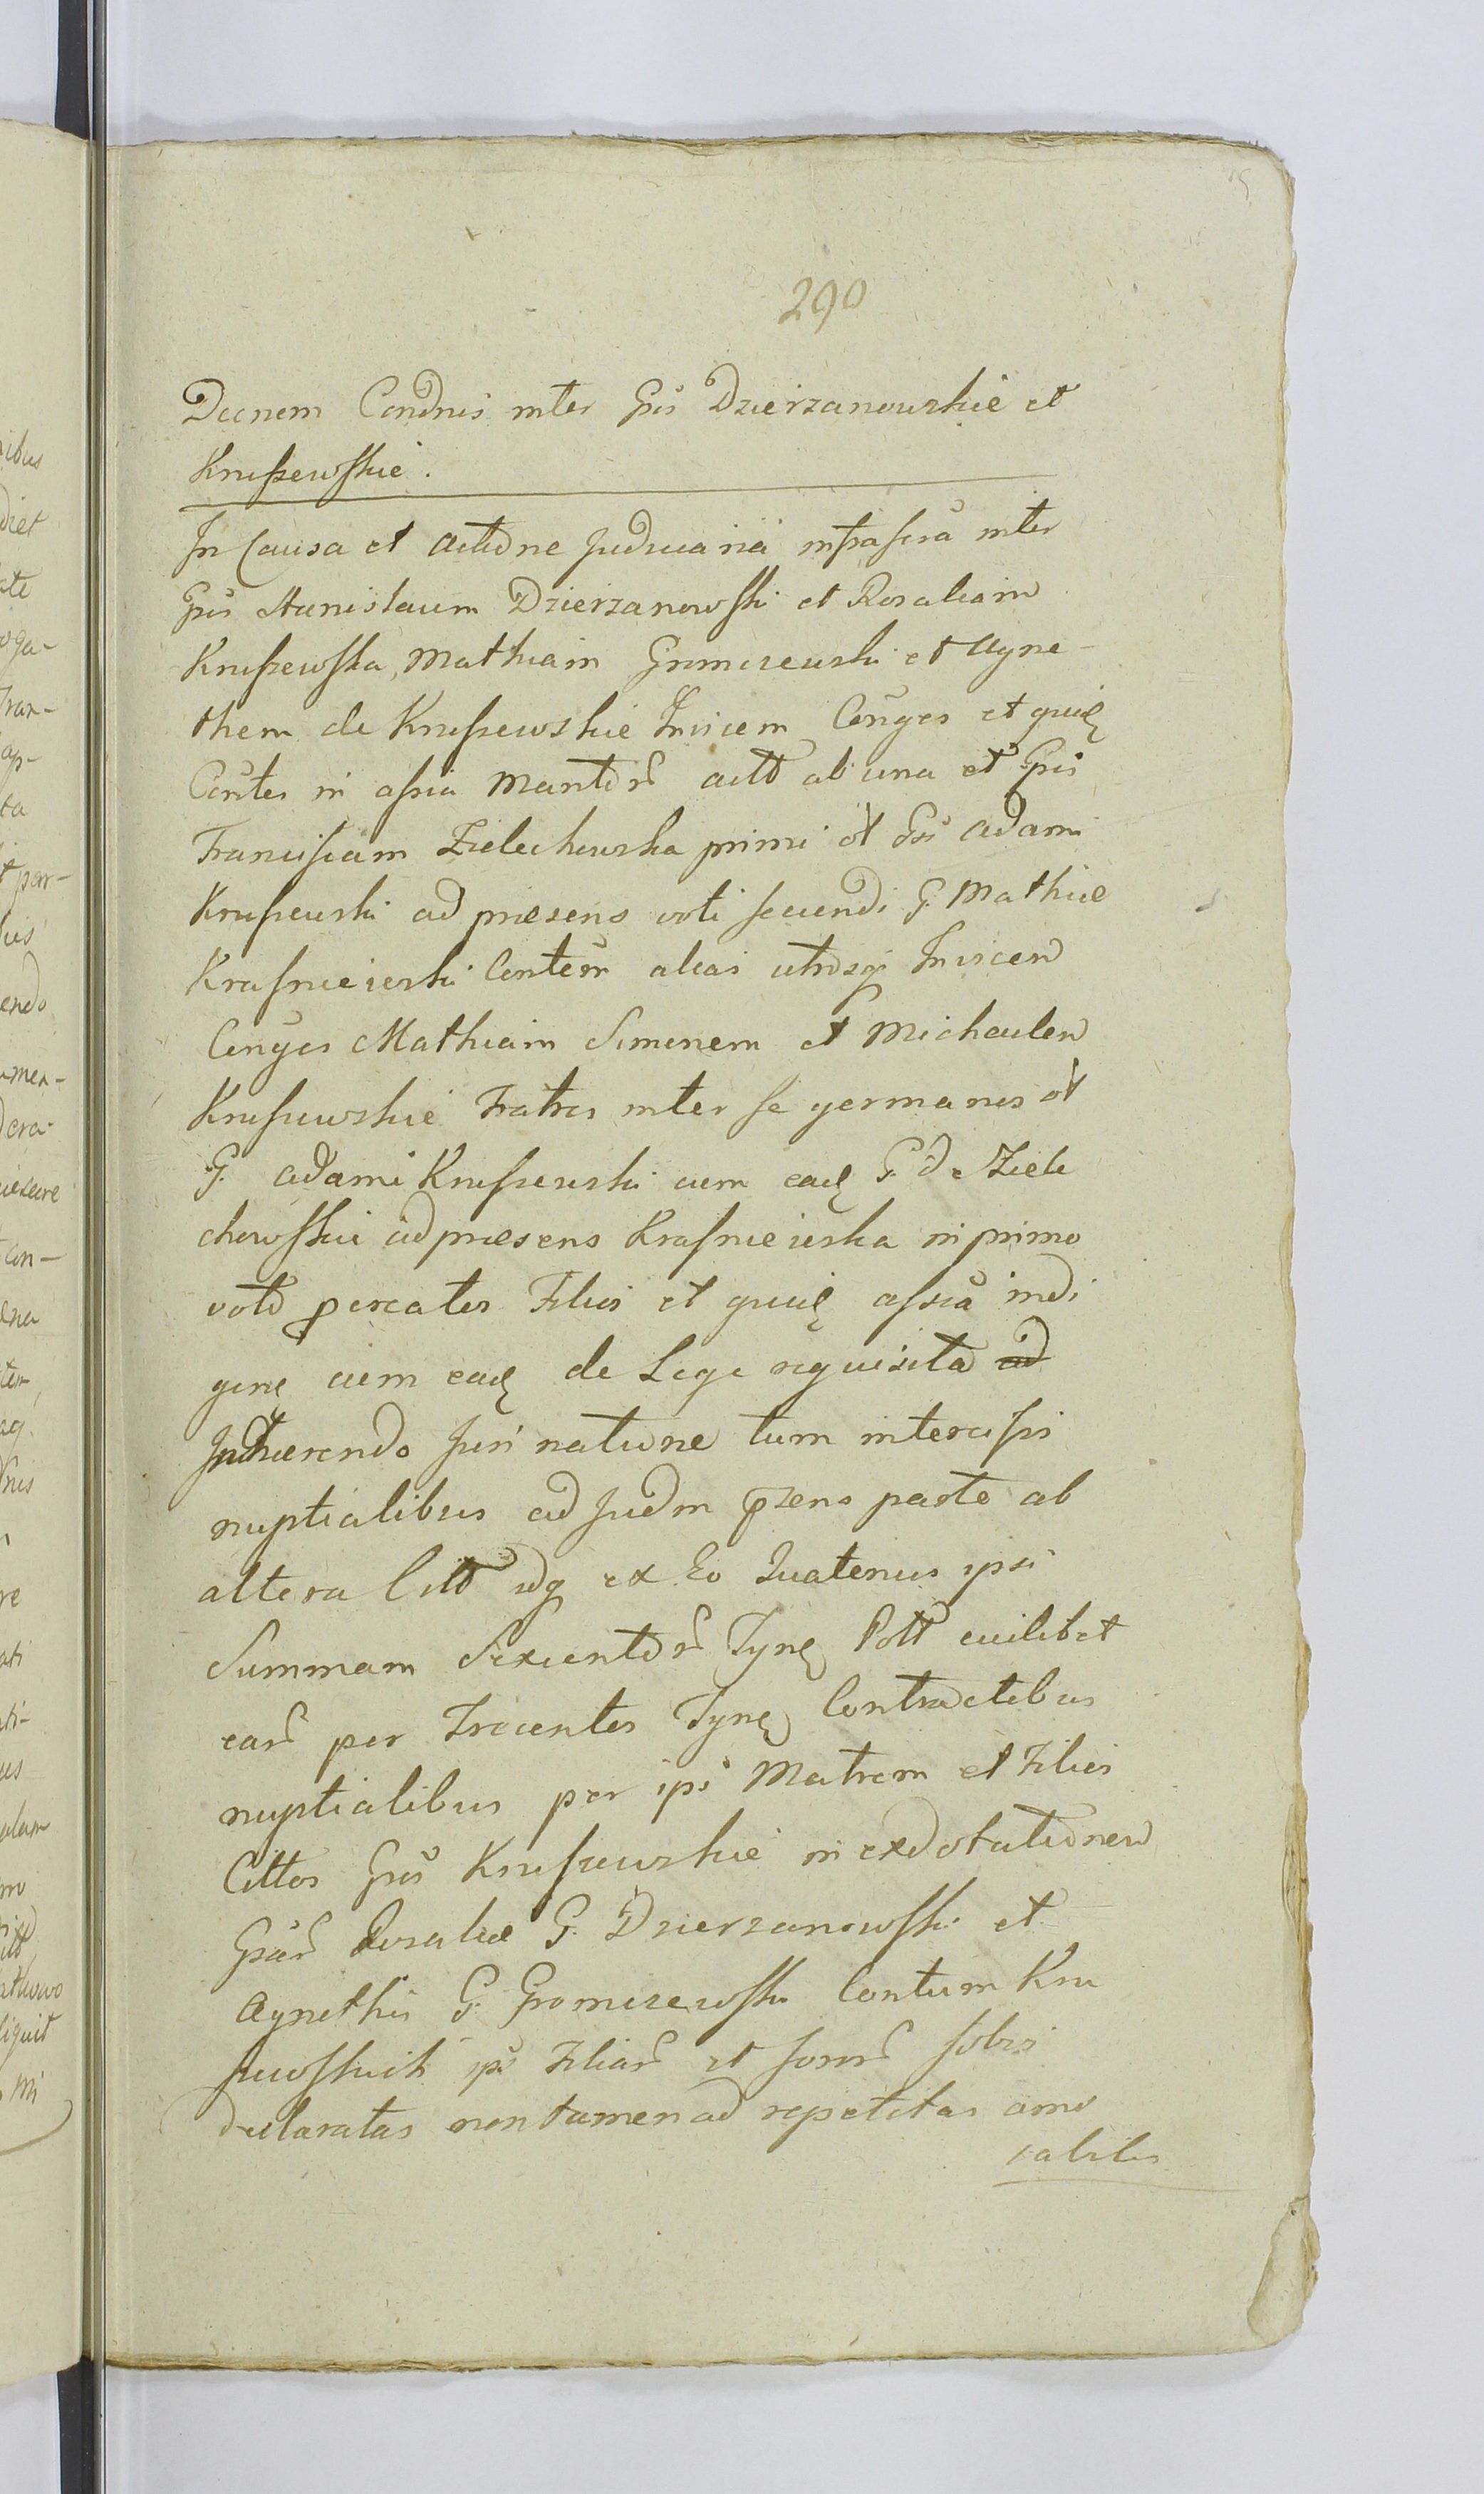 290
Decnem Condnis inter Gsos Dzierzanowskie et
Kruszewskie.
In Causa et actione Judiciaria infrascra inter
Gsos Stanislaum Dzierzanowski et Rosaliam
Kruszewska, Mathiam Gromczewski et Agne-
them de Kruszewskie Invicem Conges et quidę
Contes in assia Maritor actt ab una et Gsos
Franciscam Zielechowska primi ol Gsi Adami
Kruszewski ad præsens voti secundi G. Mathiæ
Krasnieiewski Contem alias utrosq Invicem
Conges Mathiam Simonem et Michaelem
Kruszewskie Fratres inter se germanos ol
G. Adami Kruszewski cum eadę G. de Ziele
chowskie ad præsens Krasnieiewska in primo
voto procatos Filios et quidę assia indi
genę cum eadę de Lege requisita ad
Inhærendo Juri natione tum intercisis
nuptialibus ad Judm przens parte ab
altera Citt idq ex Eo Quatenus ipsi
Summam Sexcentor Tynę Poll cuilibet
ear per Trecentos Tynę Contractibus
nuptialibus per ipsi Matrem et Filios
Cittos Gsos Kruszewskie in exdotationem
Gsar Rosaliæ G. Dzierzanowski et
Agnethis G. Gromczewski Contum Kru
szewskich ipsi Filiar et soror sobri
declaratas non tamen ad repetitas amo
cabiles